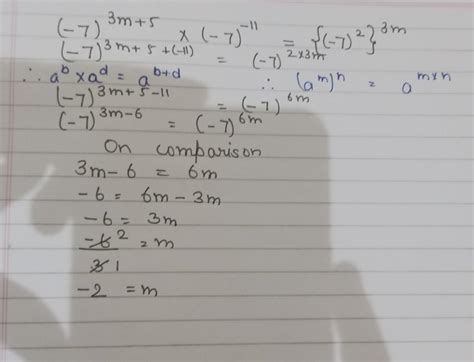 (-7)^{3m+5} × (-7)^{-11} = {(-7)^2}^{3m}
(-7)^{3m+5+(-11)} = (-7)^{2×3m}
∴ a^b × a^d = a^{b+d} ∴ (a^m)^n = a^{m×n}
(-7)^{3m+5-11} = (-7)^{6m}
(-7)^{3m-6} = (-7)^{6m}
On comparison
3m-6 = 6m
-6 = 6m-3m
-6 = 3m
-6 2 = m
3 1
-2 = m